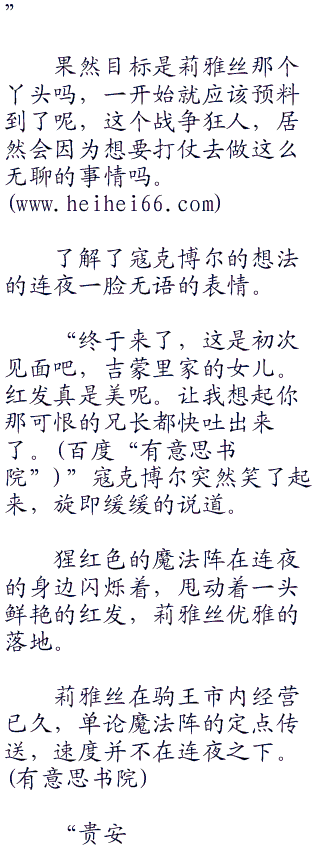 ”
果然目标是莉雅丝那个
丫头吗，一开始就应该预料
到了呢，这个战争狂人，居
然会因为想要打仗去做这么
无聊的事情吗。
(www.heihei66.com)
了解了寇克博尔的想法
的连夜一脸无语的表情。
“终于来了，这是初次
见面吧，吉蒙里家的女儿。
红发真是美呢。让我想起你
那可恨的兄长都快吐出来
了。(百度“有意思书
院”)”寇克博尔突然笑了起
来，旋即缓缓的说道。
猩红色的魔法阵在连夜
的身边闪烁着，甩动着一头
鲜艳的红发，莉雅丝优雅的
落地。
莉雅丝在驹王市内经营
已久，单论魔法阵的定点传
送，速度并不在连夜之下。
(有意思书院)
“贵安